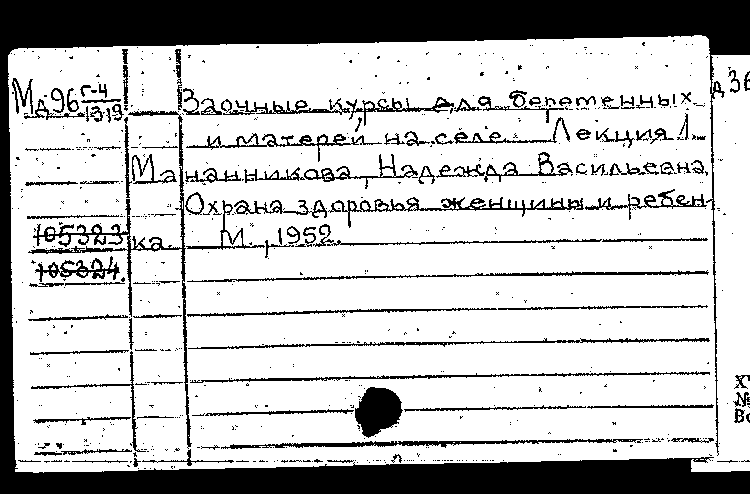 Мд96 Г-4/1319
Заочные курсы для беременных
и матерей на селе. Лекция 1.
Мананникова, Надежда Васильевна
Охрана здоровья женщины и ребен-
105323 ка. М., 1952.
105324.
д 36
XV
№
Во